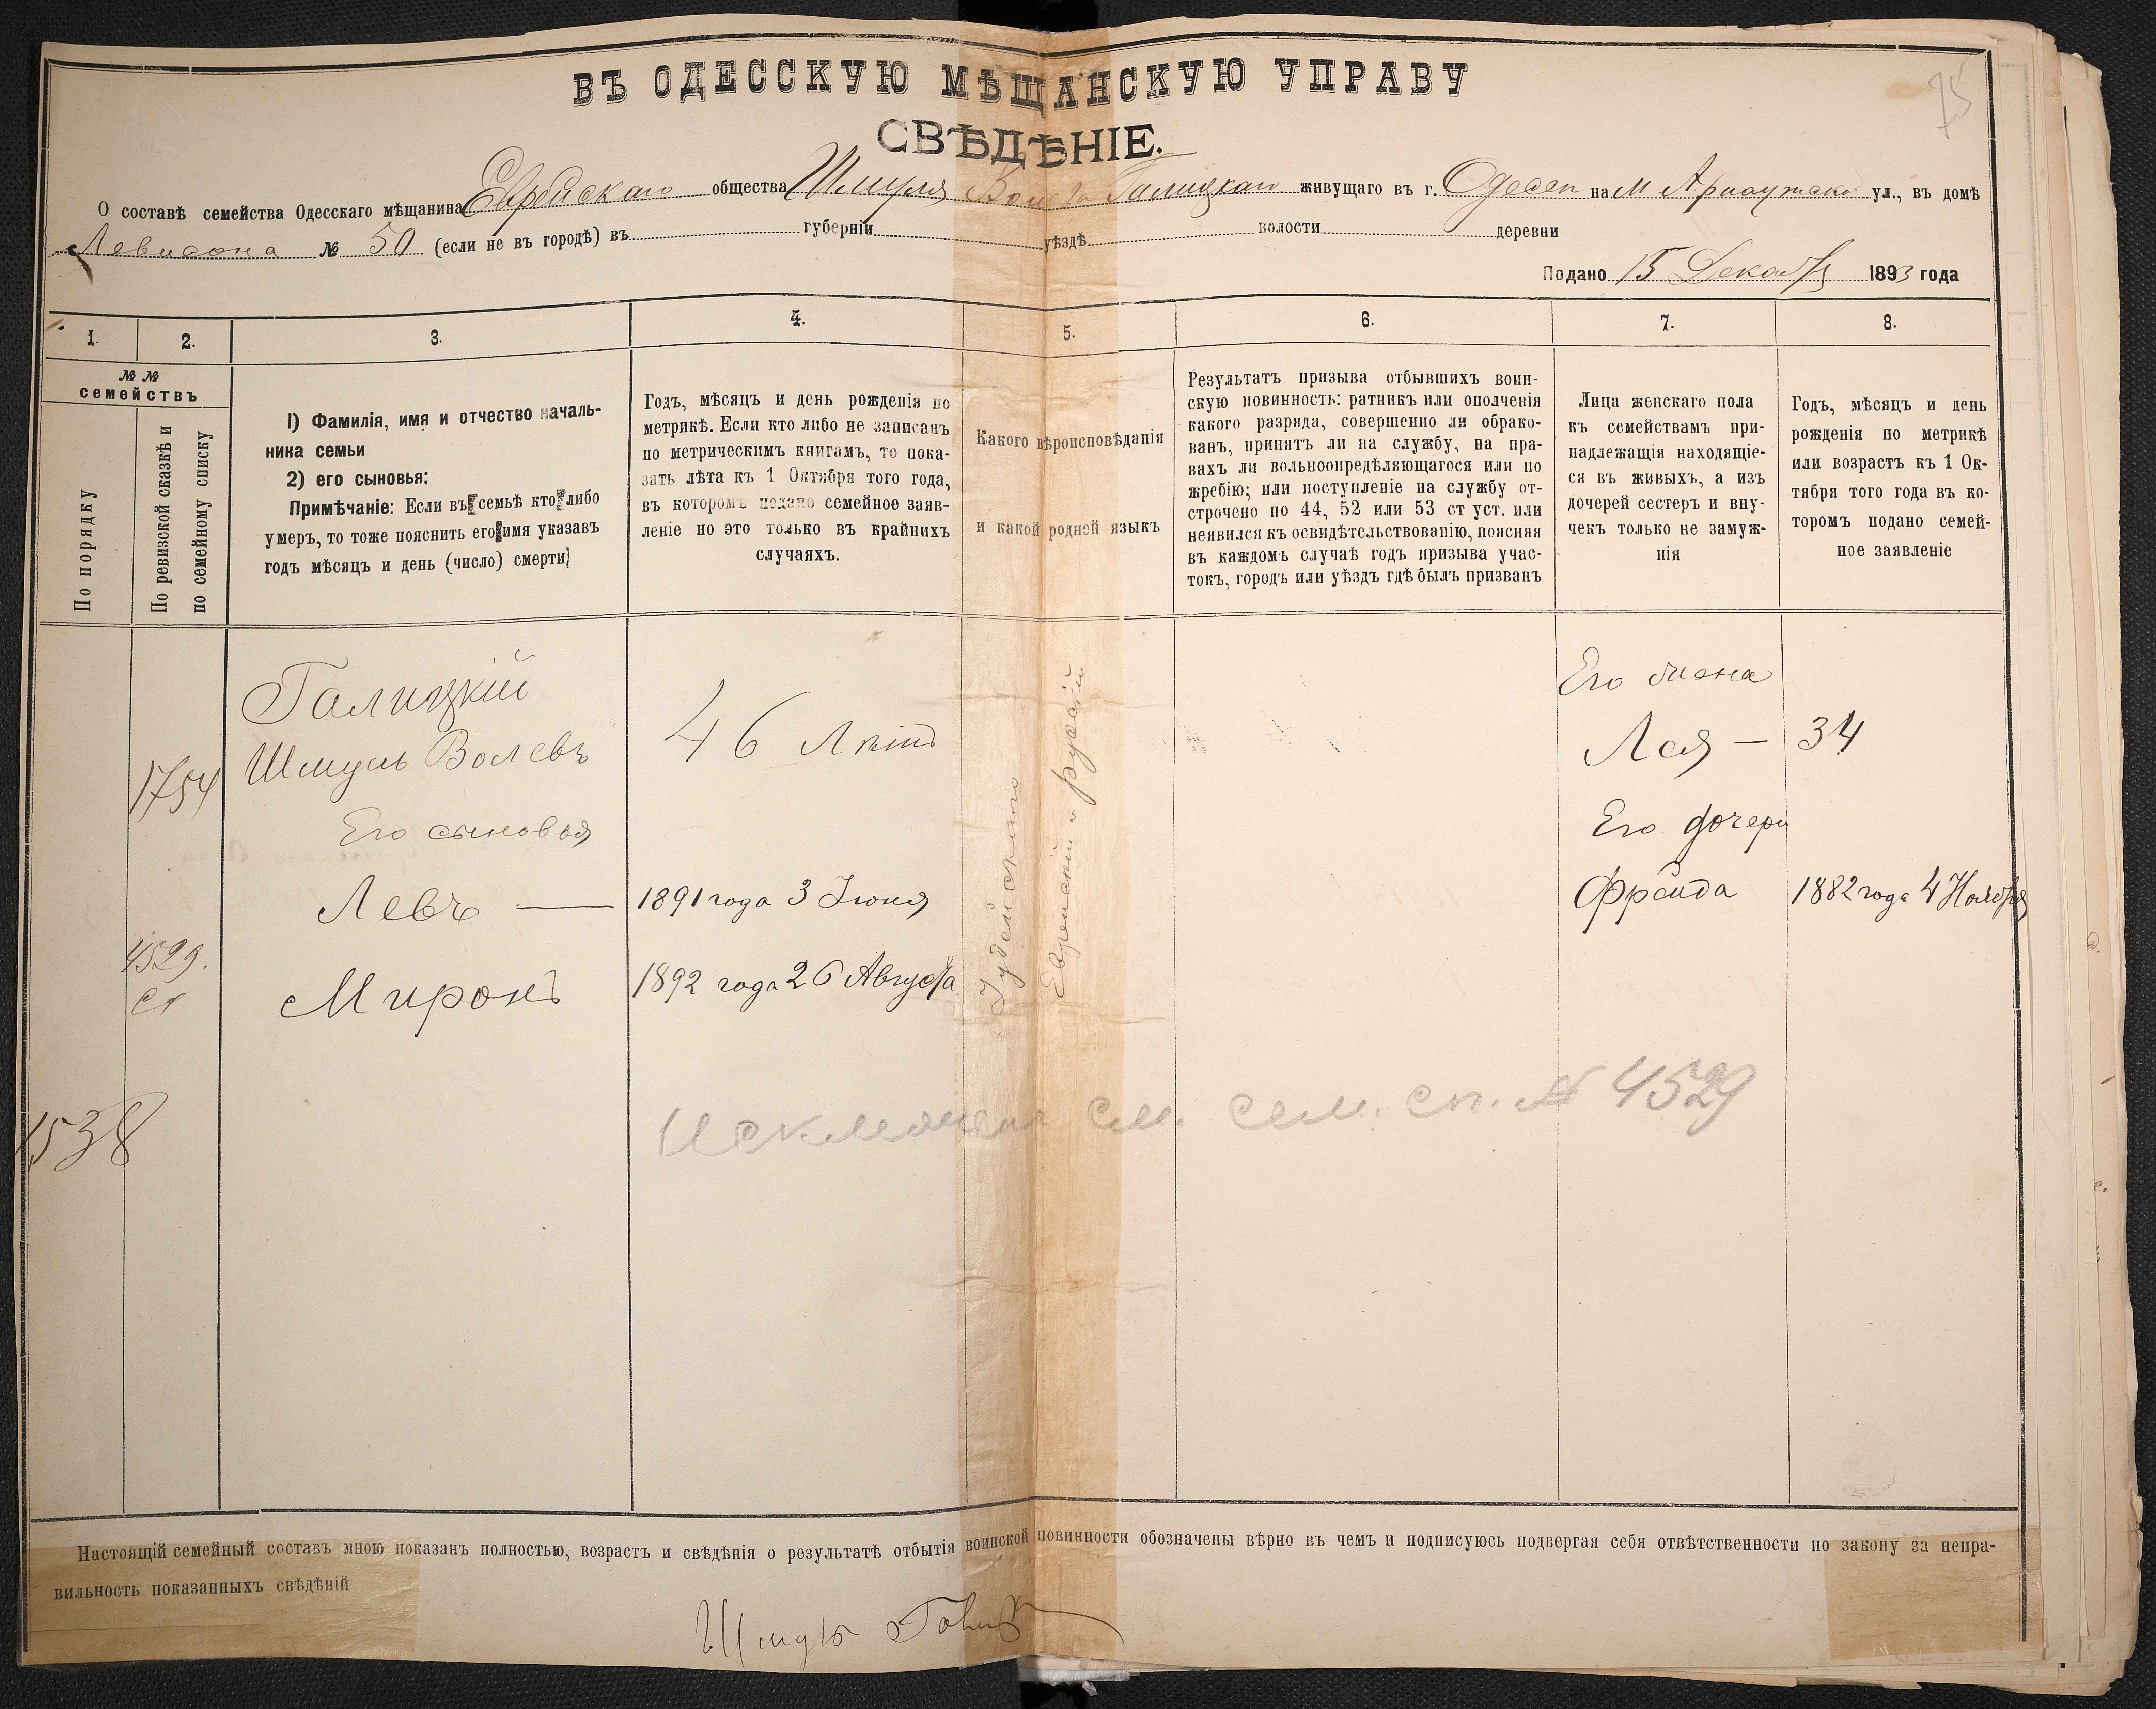 75
ВЪ ОДЕССКУЮ МѢЩАНСКУЮ УПРАВУ
СВѢДѢНІЕ.
О составѣ семейства Одесскаго мѣщанина Еврейскаго общества Шмуля Волева Галицкаго живущаго въ г. Одессѣ на М Арнаутской ул., въ домѣ
Левисона № 50 (если не въ городѣ) въ губерніи уѣздѣ волости деревни
Подано 15 Декабря 1893 года
1. 2. 3. 4. 5. 6. 7. 8.
№ №
семействъ
По порядку
По ревизской сказкѣ и
по семейному списку
1) Фамилія, имя и отчество началь-
ника семьи
2) его сыновья:
Примѣчаніе: Если въ семьѣ кто либо
умеръ, то тоже пояснить его имя указавъ
годъ мѣсяцъ и день (число) смерти
Годъ, мѣсяцъ и день рожденія по
метрикѣ. Если кто либо не записанъ
по метрическимъ книгамъ, то пока-
зать лѣта къ 1 Октября того года,
въ которомъ подано семейное заяв-
леніе но это только въ крайнихъ
случаяхъ.
Какого вѣроисповѣданія
и какой родной языкъ
Результатъ призыва отбывшихъ воин-
скую повинность: ратникъ или ополченія
какого разряда, совершенно ли обрако-
ванъ, принятъ ли на службу, на пра-
вахъ ли вольноопредѣляющагося или по
жребію; или поступленіе на службу от-
строчено по 44, 52 или 53 ст уст. или
неявился къ освидѣтельствованію, поясняя
въ каждомъ случаѣ годъ призыва учас-
токъ, городъ или уѣздъ гдѣ былъ призванъ
Лица женскаго пола
къ семействамъ при-
надлежащія находящіе-
ся въ живыхъ, а изъ
дочерей сестеръ и вну-
чекъ только не замуж-
нія
Годъ, мѣсяцъ и день
рожденія по метрикѣ
или возрастъ къ 1 Ок-
тября того года въ ко-
торомъ подано семей-
ное заявленіе
Галицкій
Шмуль Волевъ
1754
46 Лѣтъ
Іудейскаго
Еврейскій и рускій
Его жена
Лея — 34
Его сыновья
Его дочери
Левъ — 1891 года 3 Іюня
Фрейда 1882 года 4 Ноября
4529.
сп
Миронъ 1892 года 26 Августа
1538
Исключенъ см. сем. сп. № 4529
Настоящій семейный составъ мною показанъ полностью, возрастъ и свѣдѣнія о результатѣ отбытія воинской повинности обозначены вѣрно въ чемъ и подписуюсь подвергая себя отвѣтственности по закону за непра-
вильность показанныхъ свѣдѣній
Шмуль